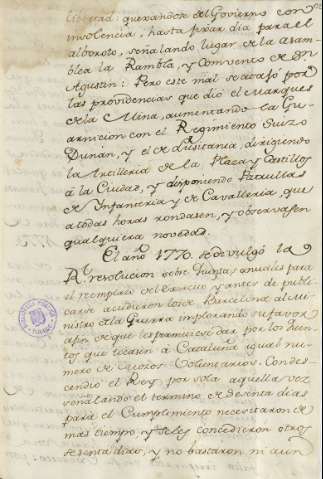 libertad: quexandose del Govierno con
insolencia, hasta fixar dia para el
alboroto, señalando lugar de la asam
blea la Rambla, y Convento de Sn.
Agustin: Pero este mal se atajó por
las providencias que dio el Marques
de la Mina, aumentando la Gu
arnicion con el Regimiento Suizo
Dunan, y el de Lusitania, dirigiendo
la Artilleria de la Plaza y Castillos
á la Ciudad, y disponiendo Patrullas
de Infanteria, y de Cavalleria, que
a todas horas rondasen, y observasen
qualquiera novedad.
El año 1770. se devulgó la
Rl. resolucion sobre Quintas anuales para
el remplazo del Exercito, y antes de publi
carse acudieron los de Barcelona al Mi
nistro de la Guerra implorando su favor
afin de que les permitiese dar por los Quin
tos que tocasen á Cataluña igual nu
mero de Mozos Voluntarios. Condes
cendió el Rey por sola aquella vez
señalando el termino de sesenta dias
para el Cumplimiento necesitaron de
mas tiempo, y se les concedieron otros
sesenta dias, y no bastaron ni aun